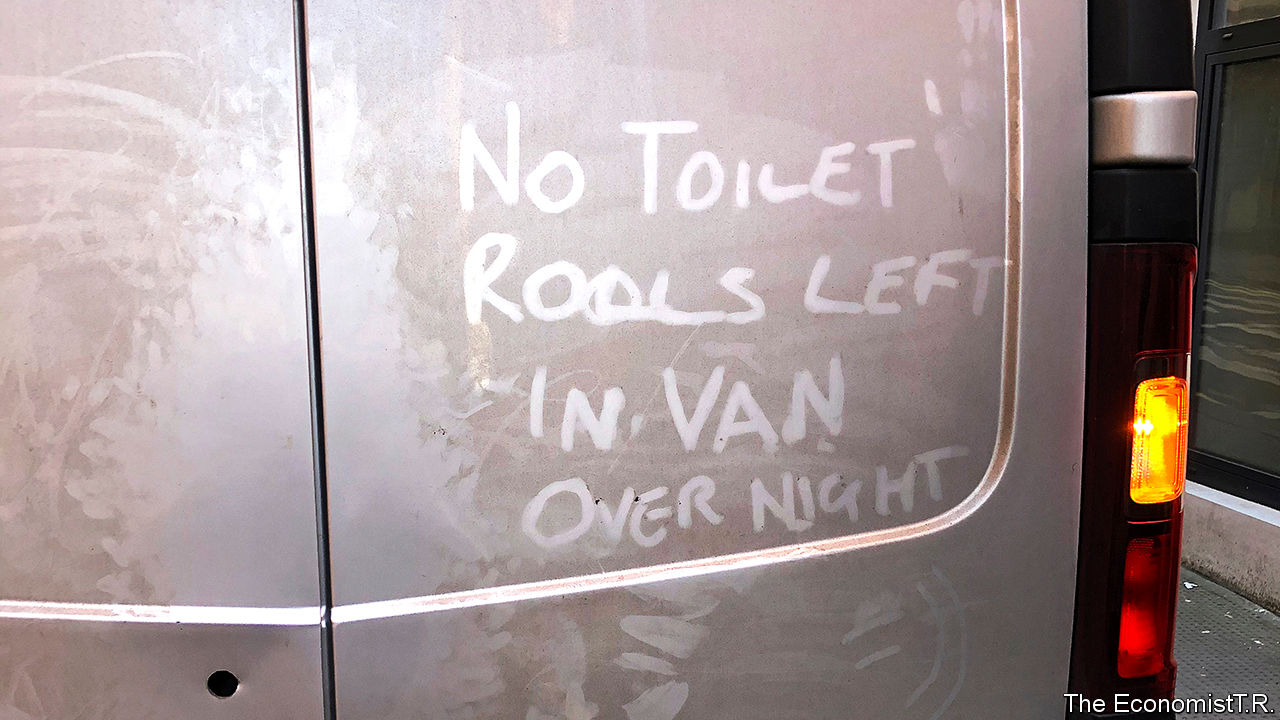 No TOILET
ROOLS LEFT
IN VAN
OVER NIGHT
The EconomistT.R.